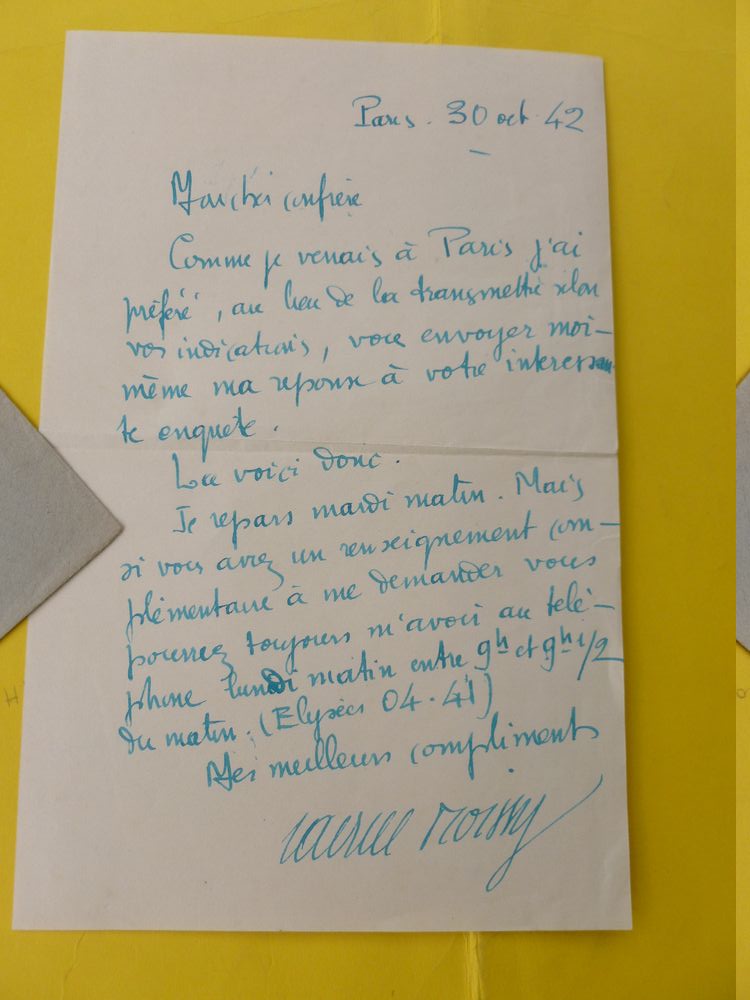 Paris. 30 oct. 42
Mon cher confrère
Comme je venais à Paris j'ai
préféré, au lieu de la transmettre selon
vos indications, vous envoyer moi-
même ma reponse à votre interessan
te enquête.
La voici donc.
Je repars mardi matin. Mais
si vous avez un renseignement com-
plémentaire à me demander vous
pourrez toujours m'avoir au télé-
phone lundi matin entre 9h et 9h 1/2
du matin. (Elysées 04.41)
Mes meilleurs compliments